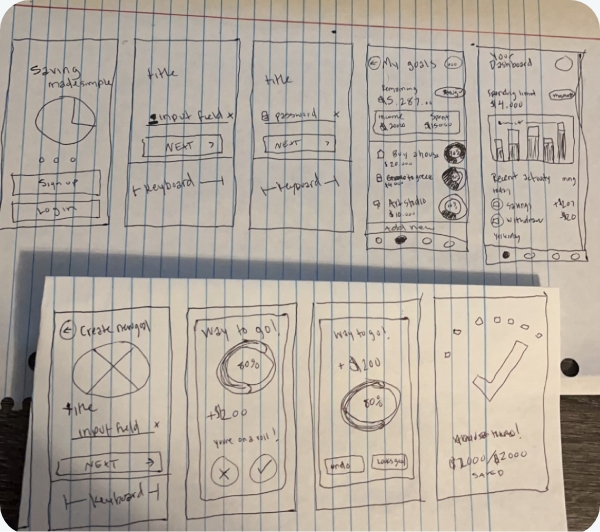 Saving
made simple
Sign up
Log in
title
input field x
NEXT >
Keyboard
title
password x
NEXT >
Keyboard
My goals
Remaining
$5,287.00
Income Spent
Buy a house
$20,000
Art studio
$10,000
Add new
Your
Dashboard
Spending limit
$4,000
Recent activity
today
savings
withdraw
$20
Yesterday
Create new goal
title
input field x
NEXT →
Keyboard
Way to go!
80%
+$200
you're on a roll!
Way to go!
+ $200
80%
undo Looks good
$2000/$2000
SAVED